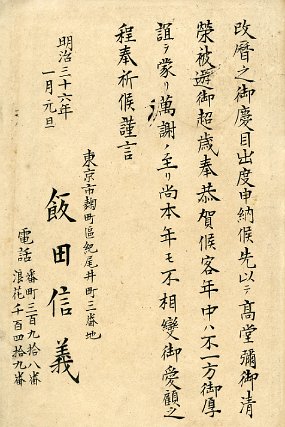 改暦之御慶目出度申納候先以テ髙堂彌御清
榮被遊御超歳奉恭賀候客年中ハ不一方御厚
誼ヲ蒙リ満謝ノ至リ尚本年モ不相變御愛顧之
程奉祈候謹言
明治三十六年
一月元旦
東京市麹町區紀尾井町三番地
飯田信義
電話
番町三百九拾八番
浪花千百四拾九番